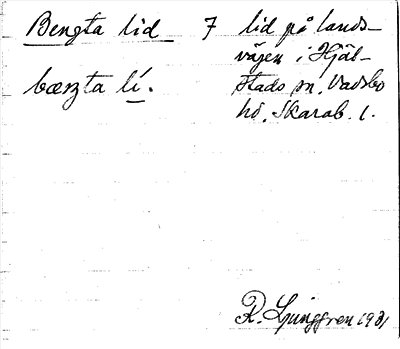 Bengta lid 7 lid på lands-
vägen i Hjäl-
bærta lí. stads sn. Vadsbo
hd. Skarab. l.
R. Ljunggren 1931